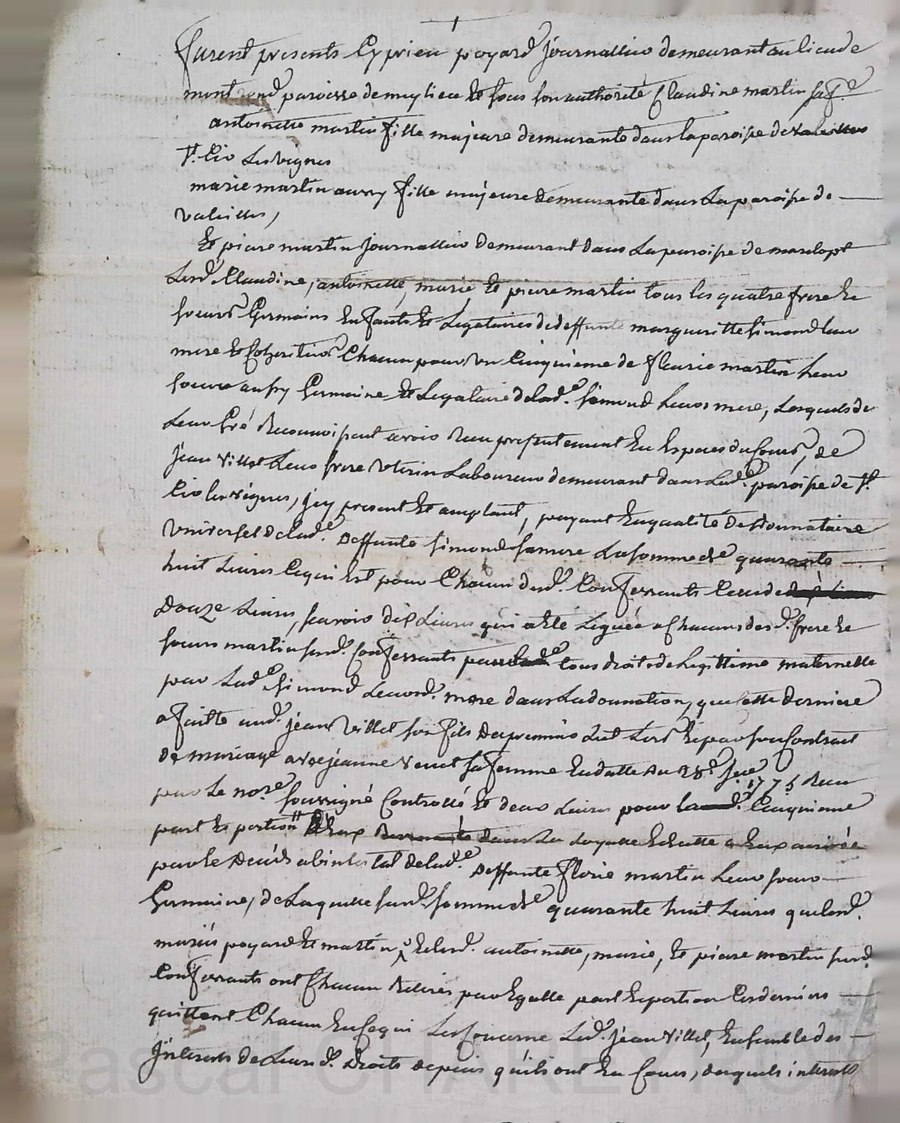 furent presents Cyprien poyard journallier demeurant au lieu de
mont rond paroisse de myliere et sous son authorité Claudine martin sa fe
antoinette martin fille majeure demeurante dans la paroisse de
st Cir les vignes
marie martin aussy fille majeure demeurante dans la paroisse de
valeilles,
Et piere martin journallier demeurant dans la paroisse de marclopt
Lesd. Claudine, antoinette, marie, et pierre martin tous les quatre frere et
soeurs Germains Enfants et Legataires de deffunte margueritte simond leur
mere et Cohéritiers Chacun pour un Cinquieme de fleurie martin leur
soeur aussy Germaine et Legataire de lad. simond leurs mere, Lesquels de
Leur Gré Reconnoissent avoir Reçu presentement En Especes du Cours, de
jean Villet Leur frere Uterin Laboureur demeurant dans Lad. paroisse de st
Cir les vignes, jcy present Et acceptant, payant En qualité de donnataire
Universel de lad. deffunte simond sa mere La somme de quarante
huit Livres Ce qui Est pour Chacun desd. Conferrants Celle de
Douze Livres, scavoir dix Livres qui a eté Leguée a Chacuns desd. frere Et
soeurs martin susd. Conferrants pour tous droits de Legittime maternelle
par Lad. simond Leurd. mere dans La donnation, que cette derniere
a faitte aud. jean Villet son fils du premier Lit Lors Et par son Contract
de mariage avec jeanne sa femme En datte du 28e 1775 Reçu
par Le nore soussigné Controllé et deux Livres pour Cinquieme
part Et portion dans La Echutte a Eux arrivée
par le Décès abintestat de lad. deffunte florie martin Leur soeur
Germaine, de Laquelle susd. somme de quarante huit Livres que lesd.
mariés poyard Et martin, Et lesd. antoinette, marie, Et piere martin susd.
Conferrants ont Chacun Retirés par Egalle part Et portion Ces derniers
quittent Chacun En Ce qui Les Concerne Led. jean Villet, Ensemble des
jnterets de Leursd. Droits depuis qu'ils ont Eu Cours, desquels interets